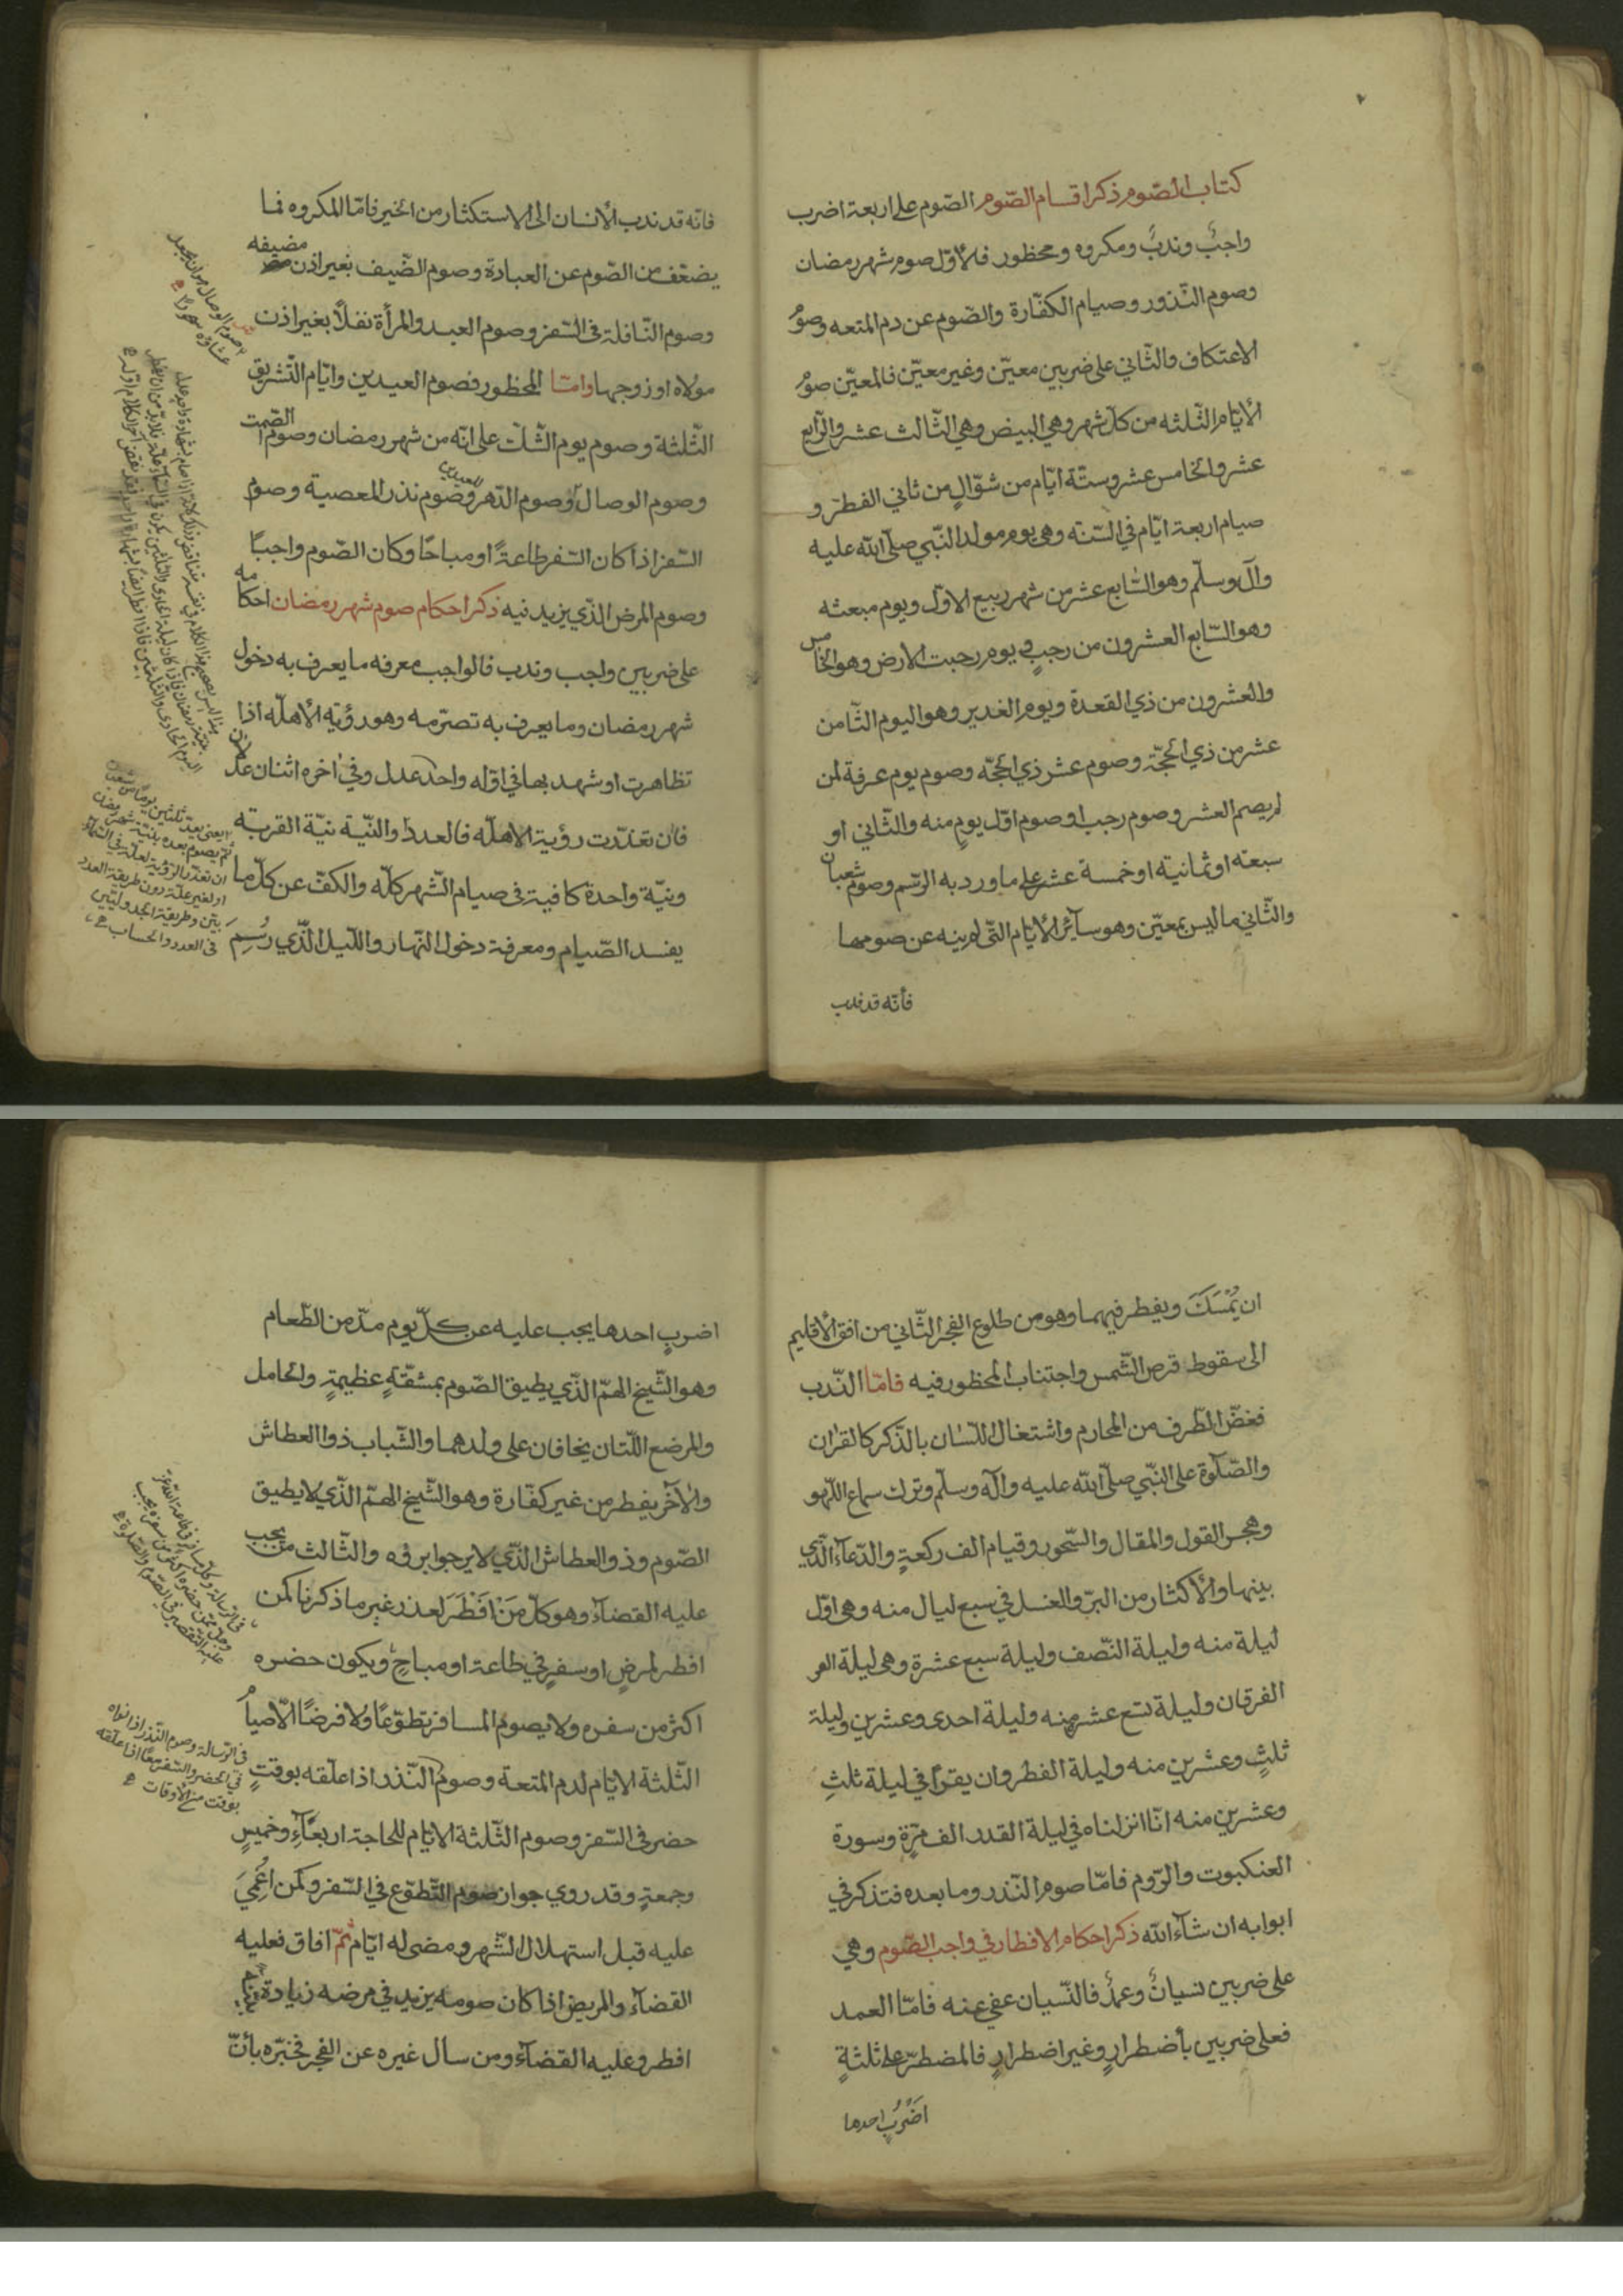 كتاب الصّوم ذكر اقسام الصّوم الصّوم على اربعة اضرب
واجبٌ وندبٌ ومكروه ومحظور فالأوّل صوم شهر رمضان
وصوم النّذور وصيام الكفّارة والصّوم عن دم المتعه وصومُ
الاعتكاف والثّاني على ضربين معيّن وغير معيّن فالمعيّن صومُ
الأيّام الثّلثه من كلّ شهر وهي البيض وهي الثّالث عشر والرّابع
عشر والخامس عشر وستّة ايّام من شوّالٍ من ثاني الفطر و
صيام اربعة ايّام في السّنه وهى يوم مولد النّبي صلّى الله عليه
وآله وسلّم وهو السّابع عشر من شهر ربيع الاوّل ويوم مبعثه
وهو السّابع العشرون من رجبٍ ويوم رحبت الارض وهو الخامس
والعشرون من ذي القعدة ويوم الغدير وهو اليوم الثّامن
عشر من ذي الحجّة وصوم عشر ذي الحجّه وصوم يوم عرفة لمن
لم يصم العشر وصوم رجب او صوم اوّل يومٍ منه والثّاني او
سبعه او ثمانيته او خمسة عشر على ما ورد به الرّسم وصوم شعبان
والثّاني ما ليس بمعيّن وهو سآئر الأيّام التّي لم ينه عن صومها
فأنّه قد ندب
فانّه قد ندب الأنسان الى الاستكثار من الخير فامّا المكروه فما
يضعّف من الصّوم عن العبادة وصوم الضّيف بغير اذن مضيفه
وصوم النّافلة فى السّفر وصوم العبد والمرأة نفلاً بغير اذن
مولاه او زوجها وامّا المحظور فصوم العيدين وايّام التّشريق
الثّلثة وصوم يوم الشّكّ على انّه من شهر رمضان وصوم الصّمت
وصوم الوصال وصوم الدّهر وصوم نذر المعصية وصوم
السّفر اذا كان السّفر طاعةً او مباحًا وكان الصّوم واجبًا
وصوم المرض الذّي يزيد فيه ذكر احكام صوم شهر رمضان احكامه
على ضربين واجب وندب فالواجب معرفه ما يعرف به دخول
شهر رمضان وما يعرف به تصرّمه وهو رؤية الأهلّه اذا
تظاهرت او شهد بها في اوّله واحد عدل وفي اخره اثنان عدلان
فان تعذّرت رؤية الاهلّه فالعدد والنّية نيّة القربة
ونيّة واحدة كافية فى صيام الشّهر كلّه والكفّ عن كلّ ما
يفسد الصّيام ومعرفة دخول النّهار واللّيل الذّي رُسِمَ
صوم الوصال هو ان يجعل
عشاؤه سحورًا
يعنى يعدّ ثلثين يومًا من شعبان
ثم يصوم بعده بنيّة شهر رمضان
ان تعذّر الرّؤية لعلّة فى السّماء
او لغير علّة دون طريقة العدد
فى العدد والحساب
ان يُمْسَكَ ويفطر فيهما وهو من طلوع الفجر الثّاني من افق الأقليم
الى سقوط قرص الشّمس واجتناب المحظور فيه فامّا النّدب
فغضّ الطّرف من المحارم واشتغال اللّسان بالذّكر كالقران
والصّلوة على النّبي صلّى الله عليه وآله وسلّم وترك سماع اللّهو
وهجر القول والمقال والسّحور وقيام الف ركعةٍ والدّعآء الذّي
بينها والأكثار من البرّ والغسل في سبع ليال منه وهى اوّل
ليلة منه وليلة النّصف وليلة سبع عشرة وهى ليلة
الفرقان وليلة تسع عشر منه وليلة احدى وعشرين وليلة
ثلثٍ وعشرين منه وليلة الفطر وان يقرأ في ليلة ثلثٍ
وعشرين منه انّا انزلناه في ليلة القدر الف مرّةٍ وسورة
العنكبوت والرّوم فامّا صوم النّذر وما بعده فتذكر في
ابوابه ان شآء الله ذكر احكام الافطار في واجب الصّوم وهي
على ضربين نسيانٌ وعمدٌ فالنّسيان عفي عنه فامّا العمد
فعلى ضربين بأضطرارٍ وغير اضطرارٍ فالمضطرّ على ثلثةٍ
اضْربٍ احدها
اضربٍ احدها يجب عليه عن كلّ يوم مدّ من الطّعام
وهو الشّيخ الهمّ الذّي يطيق الصّوم بمشقّةٍ عظيمةٍ والحامل
والمرضع اللّتان يخافان على ولدهما والشّباب ذوا العطاش
والآخر يفطر من غير كفّارة وهو الشّيخ الهمّ الذّي لا يطيق
الصّوم وذو العطاش الذّي لا يرجوا برؤه والثّالث من يجب
عليه القضآء وهو كلّ مَنْ افْطَرَ لعذر غير ما ذكرنا كمن
افطر لمرضٍ او سفرٍ في طاعة او مباحٍ ويكون حضره
اكثر من سفره ولا يصوم المسافر تطوّعًا ولا فرضًا الّا صيام
الثّلثة الايّام لدم المتعة وصوم النّذر اذا علّقه بوقتٍ
حضر فى السّفر وصوم الثّلثة الايّام للحاجة اربعآءٍ وخميسٍ
وجمعةٍ وقد روي جواز صوم التّطوّع في السّفر وكمن اُغْمِيَ
عليه قبل استهلال الشّهر ومضى له ايّام ثمّ افاق فعليه
القضآء والمريض اذا كان صومه يزيد في مرضه زيادة بيّنة
افطر وعليه القضآء ومن سال غيره عن الفجر فخبّره بأنّ
فى الرّسالة وصوم النّذر اذا نواه
في الحضر والسّفر معًا اذا علّقه
بوقت من الأوقات